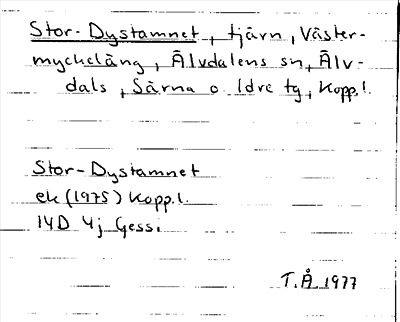 Stor-Dystamnet, tjärn, Väster-
myckeläng, Älvdalens sn, Älv-
dals, Särna o. Idre tg, Kopp.l.
Stor-Dystamnet
ek (1975) Kopp.l.
14D 4j Gessi
T.Å 1977